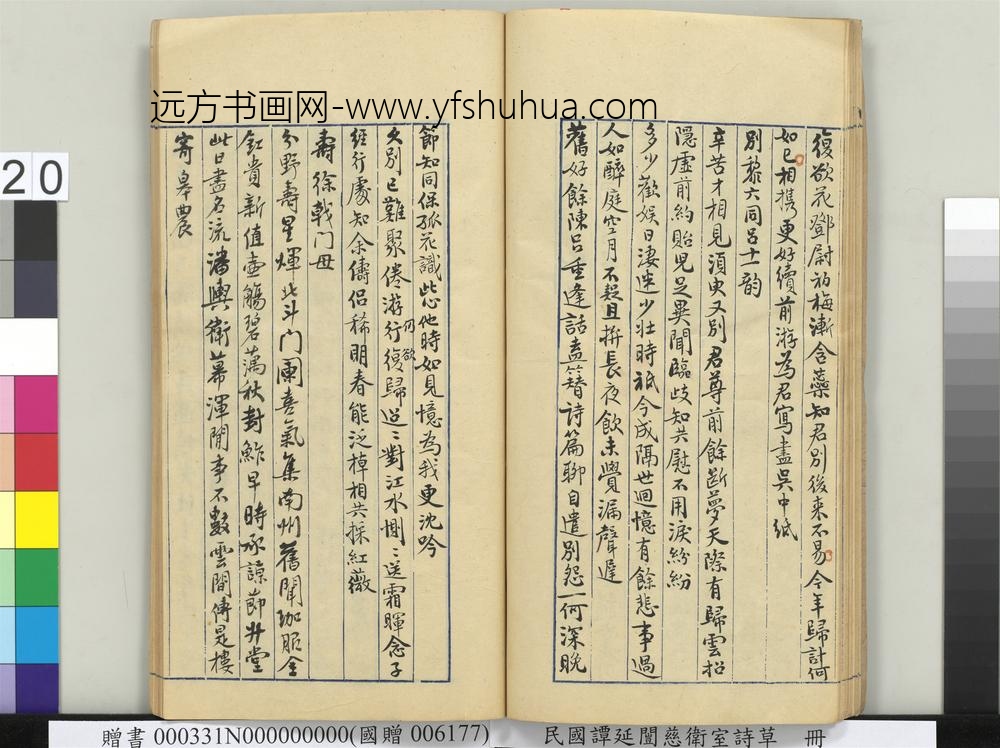 远方书画网-www.yfshuhua.com
復欲花鄧尉初梅漸含蘂知君別後来不易今年歸計何
如已相携更好續前游為君寫盡吳中紙
別黎六同呂十一韵
辛苦才相見須臾又別君尊前餘斷夢天際有歸雲招
隱虛前約貽児足異聞臨歧知共慰不用淚紛紛
多少歡娱日淒迷少壯時祗今成隔世迴憶有餘悲事過
人如醉庭空月不穀且拚長夜飲未覺漏聲遲
舊好餘陳呂重逢話盍簪詩篇聊自遣別怨一何深晚
節知同保孤花識此心他時如見憶為我更沈吟
久別已難聚倦游行復歸迢〻對江水惻〻送霜暉念子
仍欲
經行處知余儔侶稀明春能泛棹相共採紅薇
壽徐戟门母
分野壽星煇北斗门闌喜氣集南州舊聞珈服全
釭貴新值壺觴碧蕅秋封鮓早時承諒節升堂
此日盡名流潘輿衛幕渾閒事不數雲間傳是樓
寄皋農
20
贈書 000331N000000000(國贈 006177)
民國譚延闓慈衛室詩草 冊